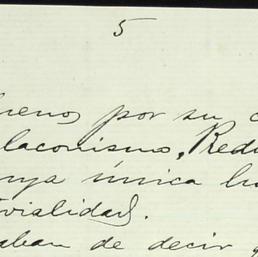 5
por su
laconismo, Redu
única
vialidad.
aban de decir